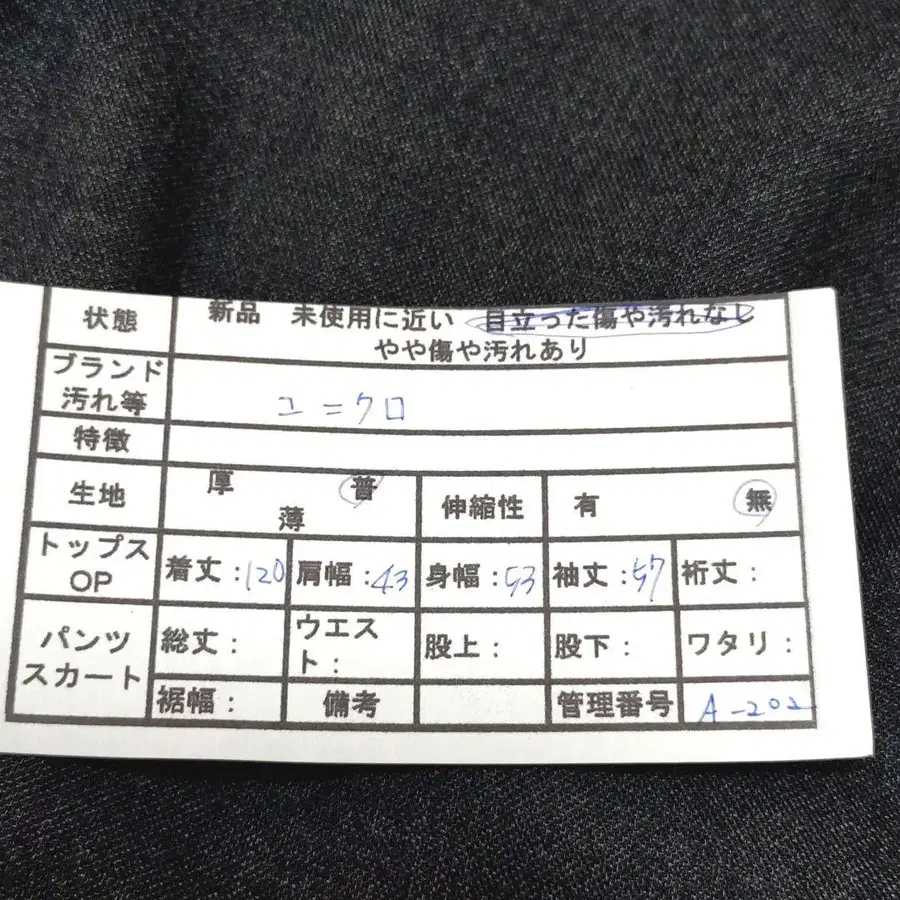 状態 新品 未使用に近い 目立った傷や汚れなし
やや傷や汚れあり
ブランド
汚れ等
ユニクロ
特徴
生地 厚 普
薄
伸縮性 有 無
トップス
OP
着丈:120 肩幅:43 身幅:53 袖丈:57 裄丈:
パンツ
スカート
総丈: ウエス
ト:
股上: 股下: ワタリ:
裾幅: 備考 管理番号 A-202